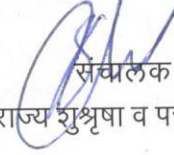 संचालक
राज्य शुश्रृषा व